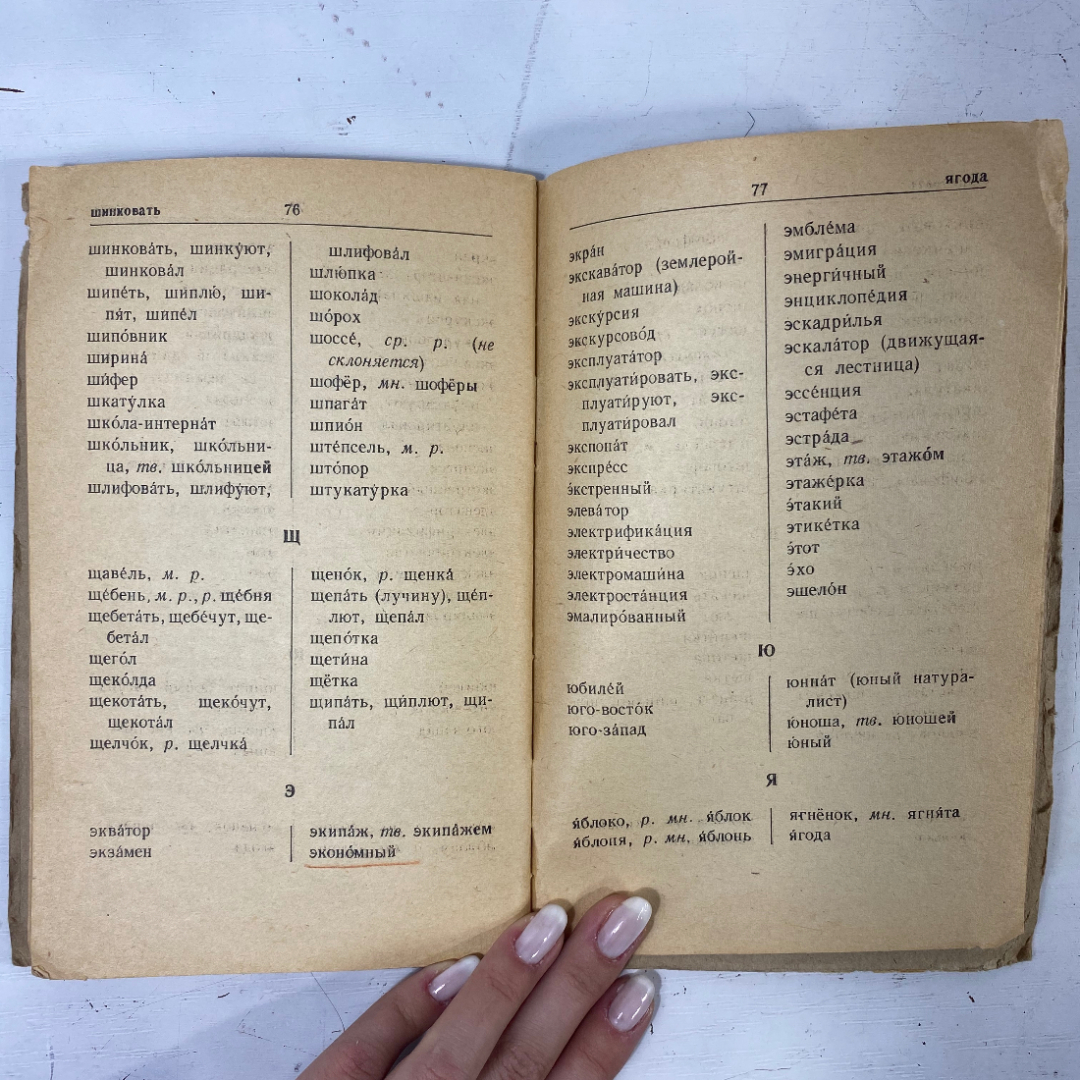 шинковать 76
шинкова́ть, шинку́ют,
шинкова́л
шипе́ть, шиплю́, ши-
пя́т, шипе́л
шипо́вник
ширина́
ши́фер
шкату́лка
шко́ла-интерна́т
шко́льник, шко́льни-
ца, тв. шко́льницей
шлифова́ть, шлифу́ют,
шлифова́л
шлю́пка
шокола́д
шо́рох
шоссе́, ср. р. (не
склоняется)
шофёр, мн. шофёры
шпага́т
шпио́н
ште́псель, м. р.
што́пор
штукату́рка
Щ
щаве́ль, м. р.
ще́бень, м. р., р. ще́бня
щебета́ть, щебе́чут, ще-
бета́л
щего́л
щеко́лда
щекота́ть, щеко́чут,
щекота́л
щелчо́к, р. щелчка́
щено́к, р. щенка́
щепа́ть (лучину), ще́п-
лют, щепа́л
щепо́тка
щети́на
щётка
щипа́ть, щи́плют, щи-
па́л
Э
эква́тор
экза́мен
экипа́ж, тв. экипа́жем
эконо́мный
77 ягода
экра́н
экскава́тор (землерой-
ная машина)
экску́рсия
экскурсово́д
эксплуата́тор
эксплуати́ровать, экс-
плуати́руют, экс-
плуати́ровал
экспона́т
экспре́сс
э́кстренный
элева́тор
электрифика́ция
электри́чество
электромаши́на
электроста́нция
эмалиро́ванный
эмбле́ма
эмигра́ция
энерги́чный
энциклопе́дия
эскадри́лья
эскала́тор (движущая-
ся лестница)
эссе́нция
эстафе́та
эстра́да
эта́ж, тв. этажо́м
этаже́рка
э́такий
этике́тка
э́тот
э́хо
эшело́н
Ю
юбиле́й
юго-восто́к
юго-за́пад
юнна́т (юный натура-
лист)
ю́ноша, тв. ю́ношей
ю́ный
Я
я́блоко, р. мн. я́блок
я́блоня, р. мн. я́блонь
ягнёнок, мн. ягня́та
я́года